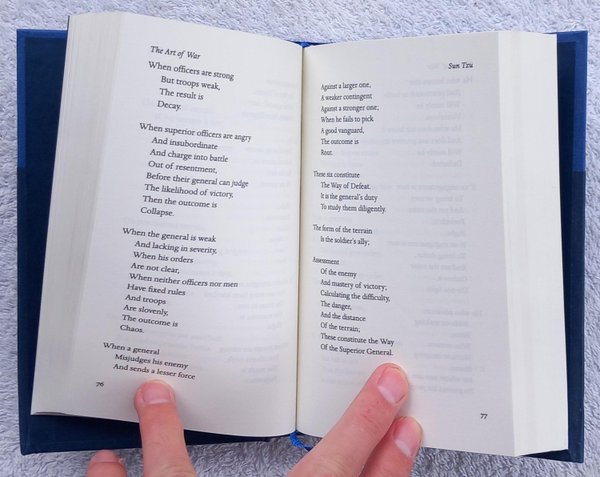 The Art of War
When officers are strong
But troops weak,
The result is
Decay.
When superior officers are angry
And insubordinate
And charge into battle
Out of resentment,
Before their general can judge
The likelihood of victory,
Then the outcome is
Collapse.
When the general is weak
And lacking in severity,
When his orders
Are not clear,
When neither officers nor men
Have fixed rules
And troops
Are slovenly,
The outcome is
Chaos.
When a general
Misjudges his enemy
And sends a lesser force
76
Sun Tzu
Against a larger one,
A weaker contingent
Against a stronger one;
When he fails to pick
A good vanguard,
The outcome is
Rout.
These six constitute
The Way of Defeat.
It is the general's duty
To study them diligently.
The form of the terrain
Is the soldier's ally;
Assessment
Of the enemy
And mastery of victory;
Calculating the difficulty,
The danger,
And the distance
Of the terrain;
These constitute the Way
Of the Superior General.
77